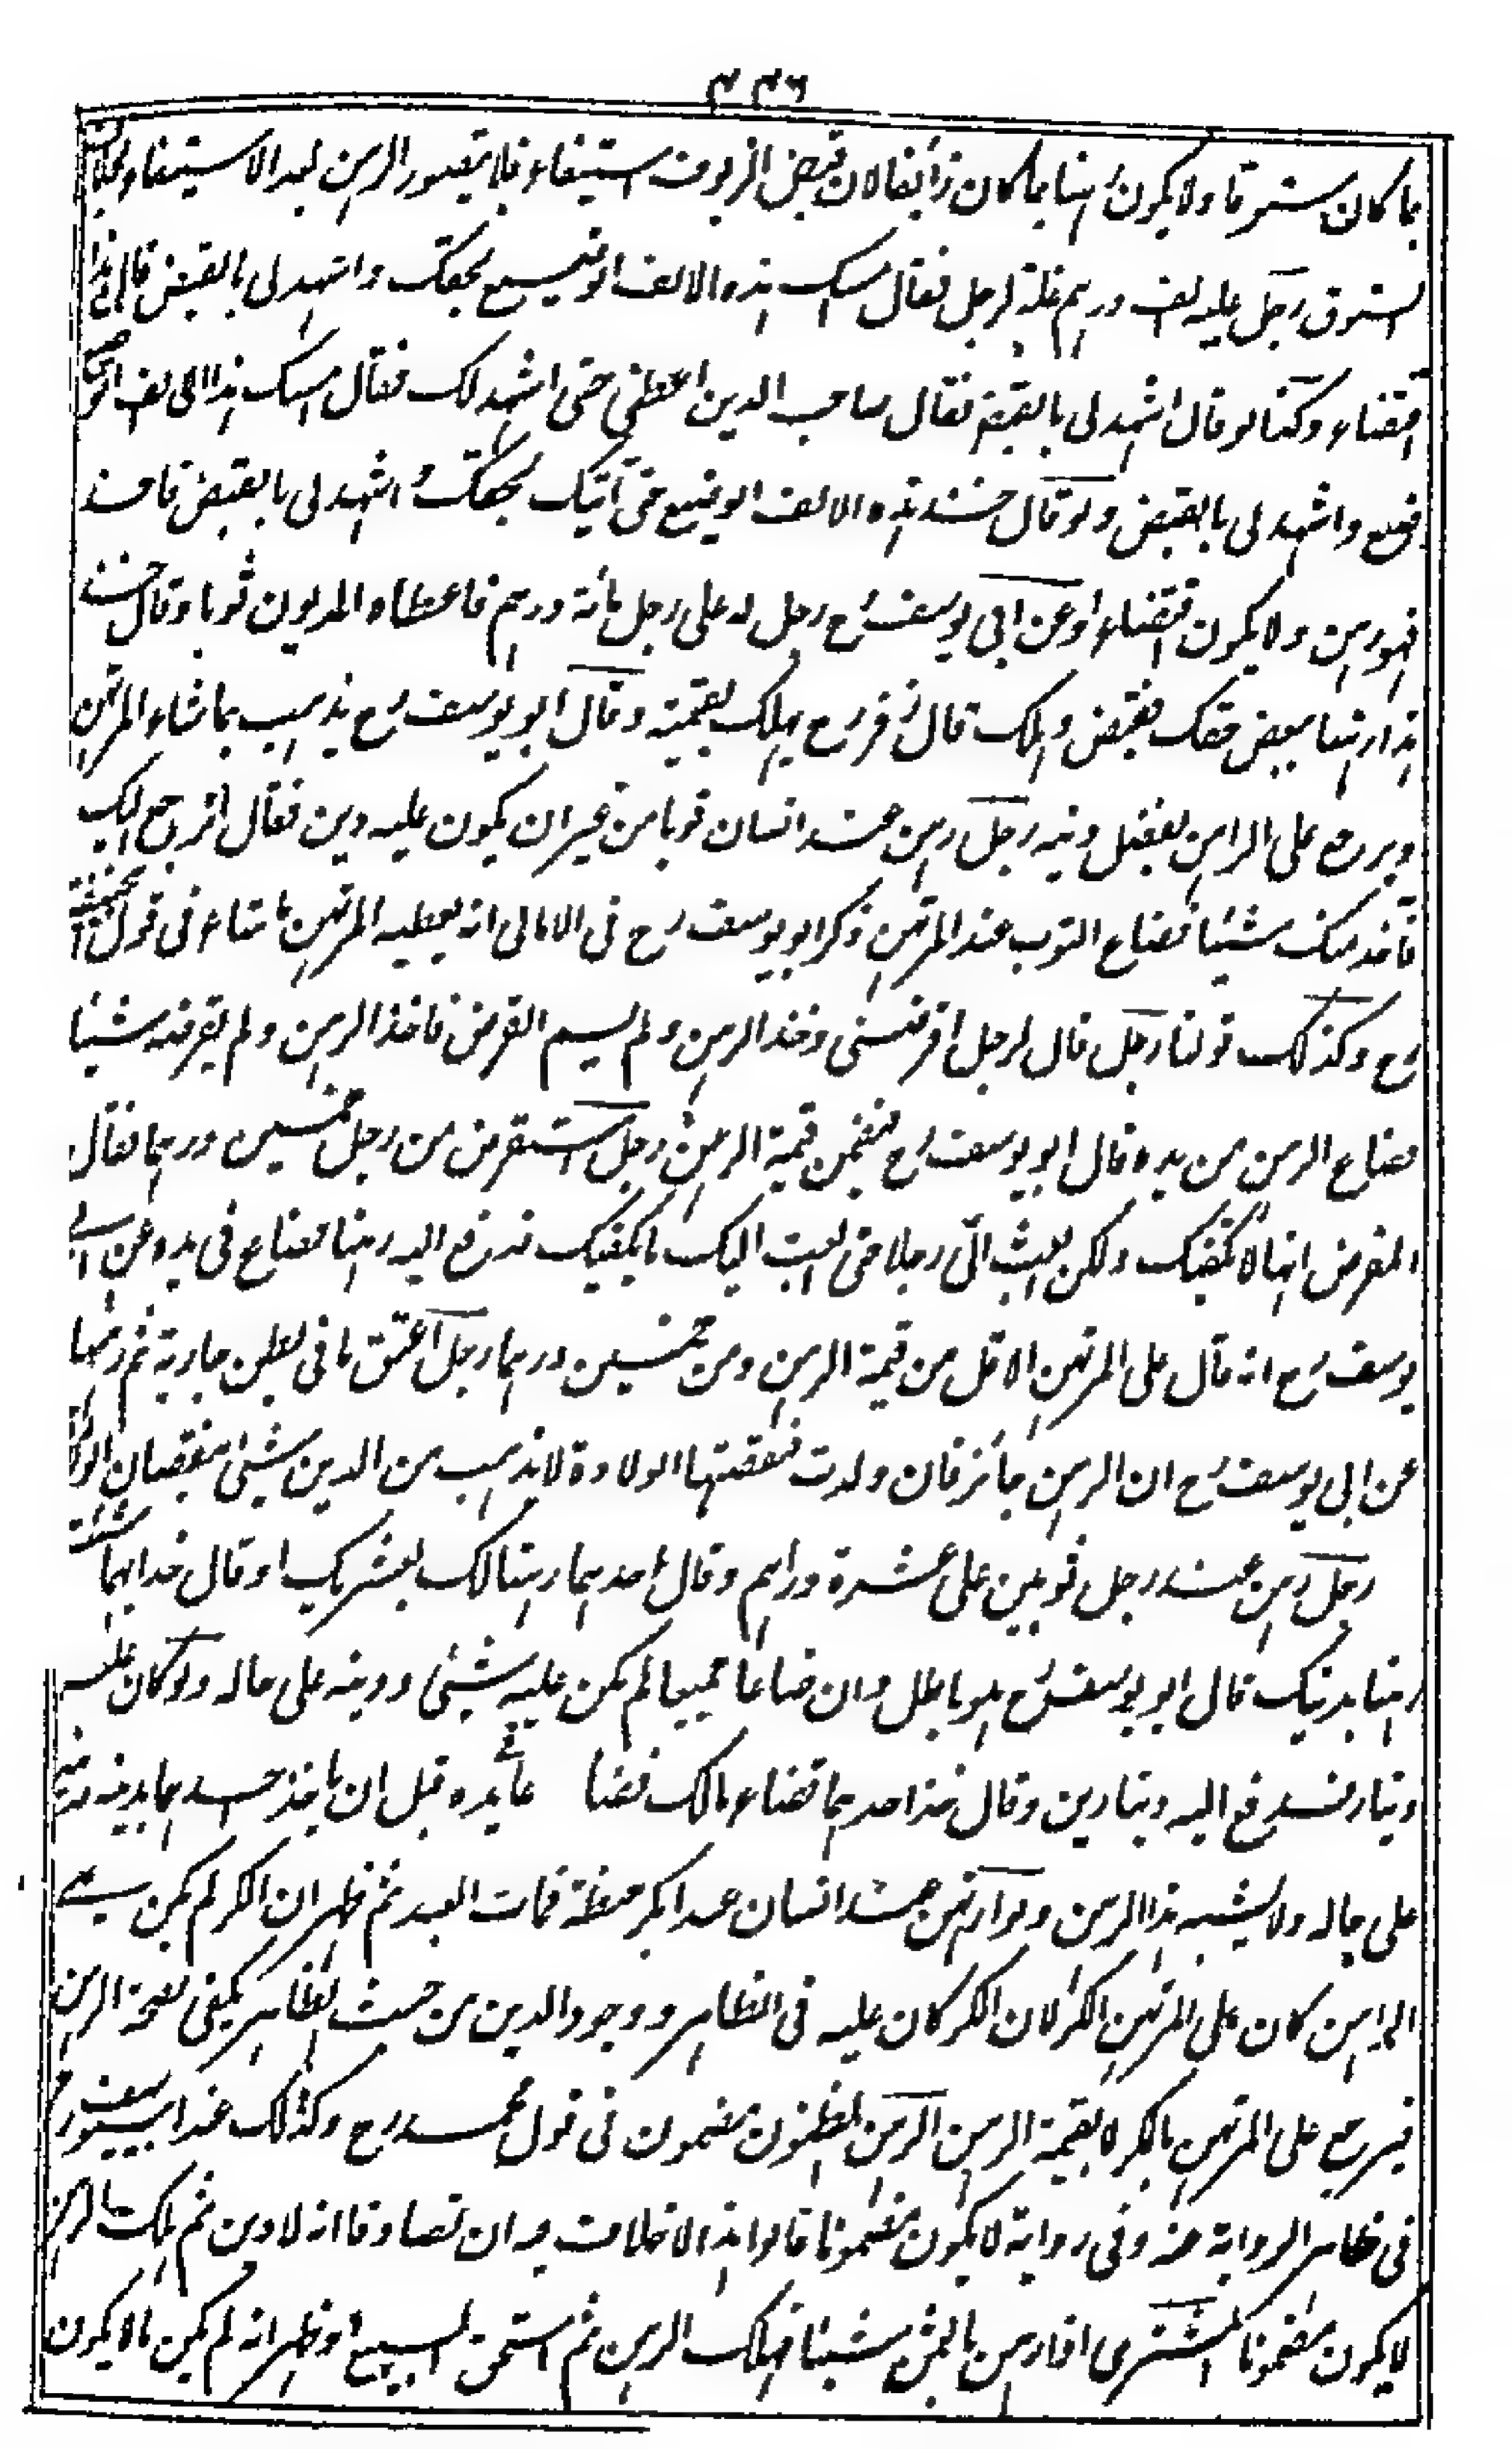 ٤٣٦
ما كان ستوقا ولا يكون رهنا بما كان زائفا لان قبض الزيوف استيفاء فلا يتصور الرهن بعد الاستيفاء بخلاف
الستوق رجل عليه الف درهم غلة لرجل فقال امسك هذه الالف الوضح بحقك واشهد لى بالقبض قال هذا
اقتضاء وكذا لو قال اشهد لى بالقبض فقال صاحب الدين اعطنى حتى اشهد لك فقال امسك هذا الالف الوضح
واشهد لى بالقبض ولو قال خذ هذه الالف الوضح حتى آتيك بحقك واشهد لى بالقبض فاخذ
فهو رهن ولا يكون اقتضاء وعن ابى يوسف رح رجل له على رجل مأة درهم فاعطاه المديون ثوبا وقال خذ
هذا رهنا ببعض حقك فقبض وهلك قال زفر رح يهلك بقيمته وقال ابو يوسف رح يذهب بما شاء المرتهن
ويرجع على الراهن بفضل دينه رجل رهن عند انسان ثوبا من غير ان يكون عليه دين فقال اذ رجع اليك
فآخذ منك شيئا فضاع الثوب عند المرتهن ذكر ابو يوسف رح فى الامالى انه يعطيه المرتهن ما شاء فى قول ابى حنيفة
رح وكذلك قولنا رجل قال لرجل اقرضنى وخذ الرهن ولم يسم القرض فاخذ الرهن ولم يقرضه شيئا
فضاع الرهن من يده قال ابو يوسف رح يضمن قيمة الرهن رجل استقرض من رجل خمسين درهما فقال
المقرض انها لا تكفيك ولكن ابعث الىّ رجلا حتى ابعث اليك ما يكفيك فدفع اليه رهنا فضاع فى يده عن ابى
يوسف رح انه قال على المرتهن الاقل من قيمة الرهن ومن خمسين درهما رجل اعتق ما فى بطن جارية ثم رهنها
عن ابى يوسف رح ان الرهن جائز فان ولدت فنقصتها الولادة لا يذهب من الدين شيئ بنقصان الولادة
رجل رهن عند رجل ثوبين على عشرة دراهم وقال احدهما رهنا لك بعشرتك او قال خذ ايهما شئت
رهنا بدينك قال ابو يوسف رح هو باطل وان ضاعا جميعا لم يكن عليه شيئ ودينه على حاله ولو كان عليه
دينار فدفع اليه دينارين وقال خذ احدهما قضاء مالك فضاعا فى يده قبل ان ياخذ احدهما بدينه فدينه
على حاله ولا يشبه هذا الرهن ولو ارتهن عند انسان عبدا بكر حنطة فمات العبد ثم ظهر ان الكر لم يكن على
الراهن كان على المرتهن الكر لان الكر كان عليه فى الظاهر ووجود الدين من حيث الظاهر يكفى لصحة الرهن
فيرجع على المرتهن بالكر لا بقيمة الرهن الرهن المظنون مضمون فى قول محمد رح وكذلك عند ابى يوسف رح
فى ظاهر الرواية عنه وفى رواية لا يكون مضمونا قالوا هذا الاختلاف بعد ان تصادقا انه لا دين ثم هلك الرهن
لا يكون مضمونا المشترى اذا رهن بالثمن شيئا فهلك الرهن ثم استحق المبيع او ظهر انه لم يكن مالا يكون